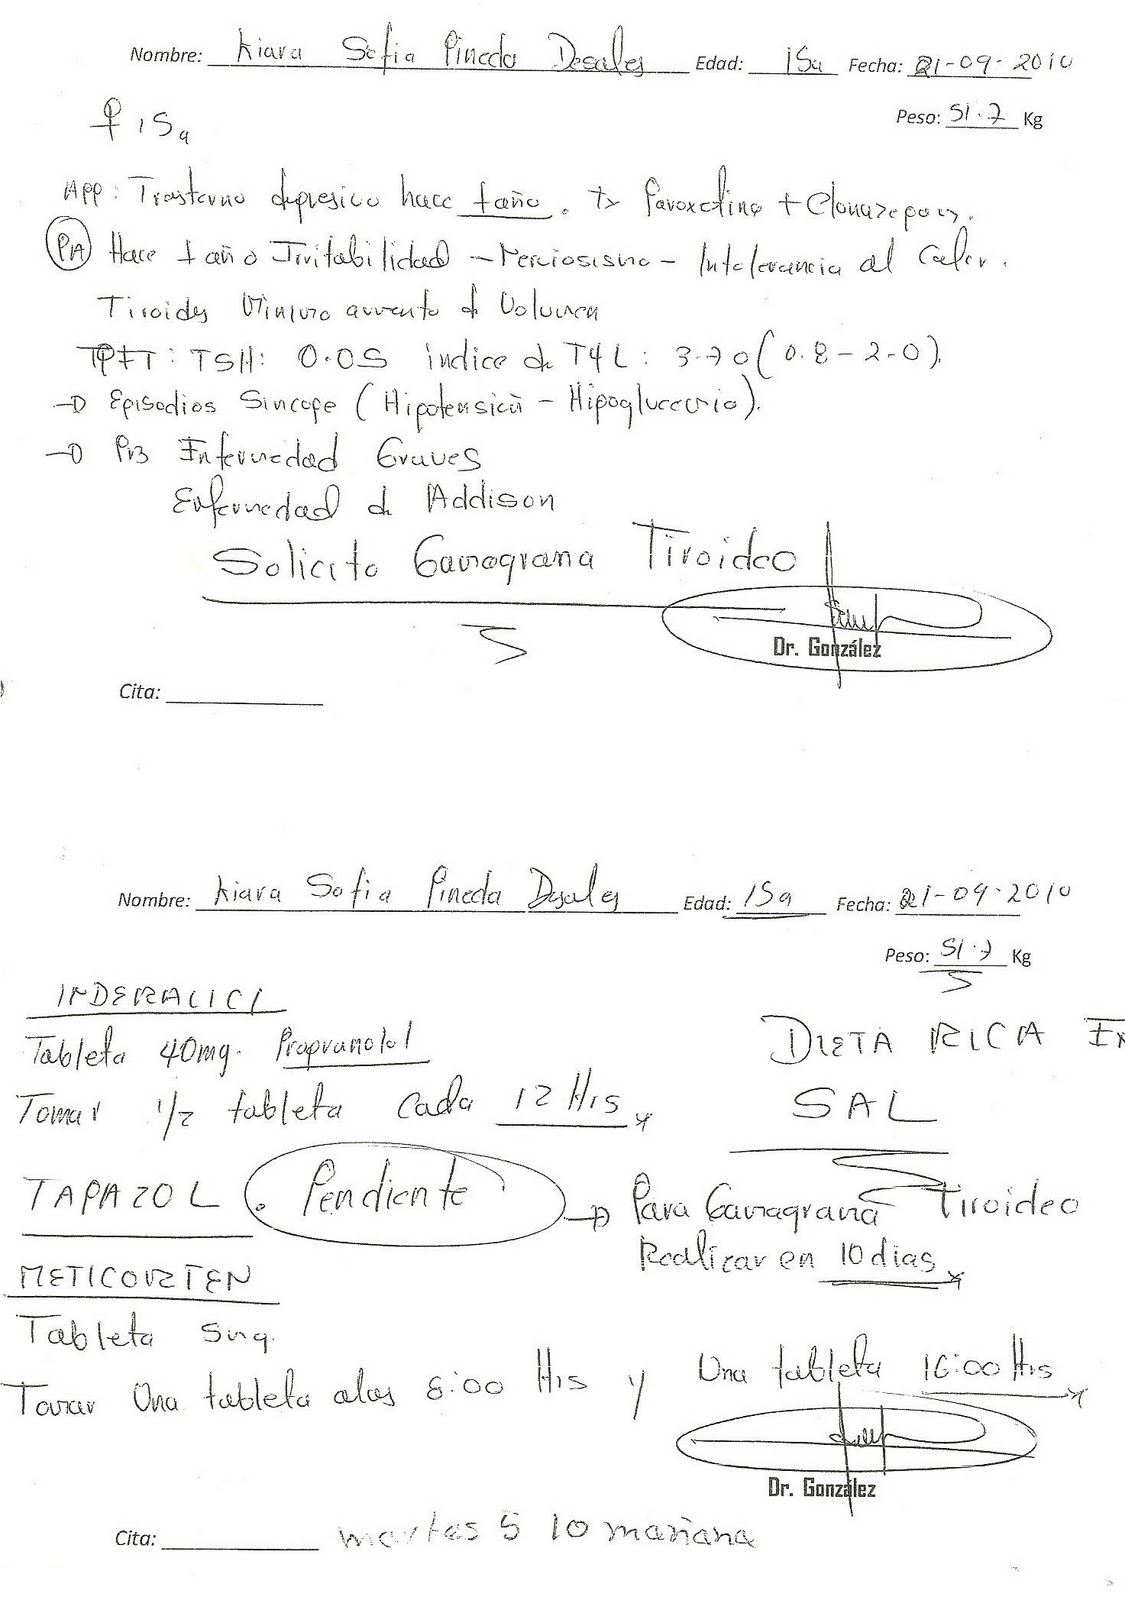 Nombre: Kiara Sofia Pineda Desales Edad: 15a Fecha: 21-09-2010
Peso: 51.7 Kg
♀ 15a
APP: Trastorno depresivo hace 1 año. Tx Paroxetina + Clonazepam.
PA Hace 1 año Irritabilidad - Nerviosismo - Intolerancia al Calor.
Tiroides Mínimo aumento d Volumen
PFT: TSH: 0.05 indice de T4L: 3.70 (0.8-2.0).
→ Episodios Sincope (Hipotensión - Hipoglucemia).
→ Pb Enfermedad Graves
Enfermedad d Addison
Solicito Gamagrama Tiroideo
Dr. González
Cita:
Nombre: Kiara Sofia Pineda Desales Edad: 15a Fecha: 21-09-2010
Peso: 51.7 Kg
INDERALICI
Tableta 40mg. Propranolol
Tomar 1/2 tableta cada 12 Hrs
DIETA RICA EN
SAL
TAPAZOL. Pendiente → Para Gamagrama Tiroideo
Realizar en 10 dias
METICORTEN
Tableta 5mg.
Tomar Una tableta alas 8:00 Hrs y Una tableta 16:00 Hrs
Dr. González
Cita: martes 5 10 mañana